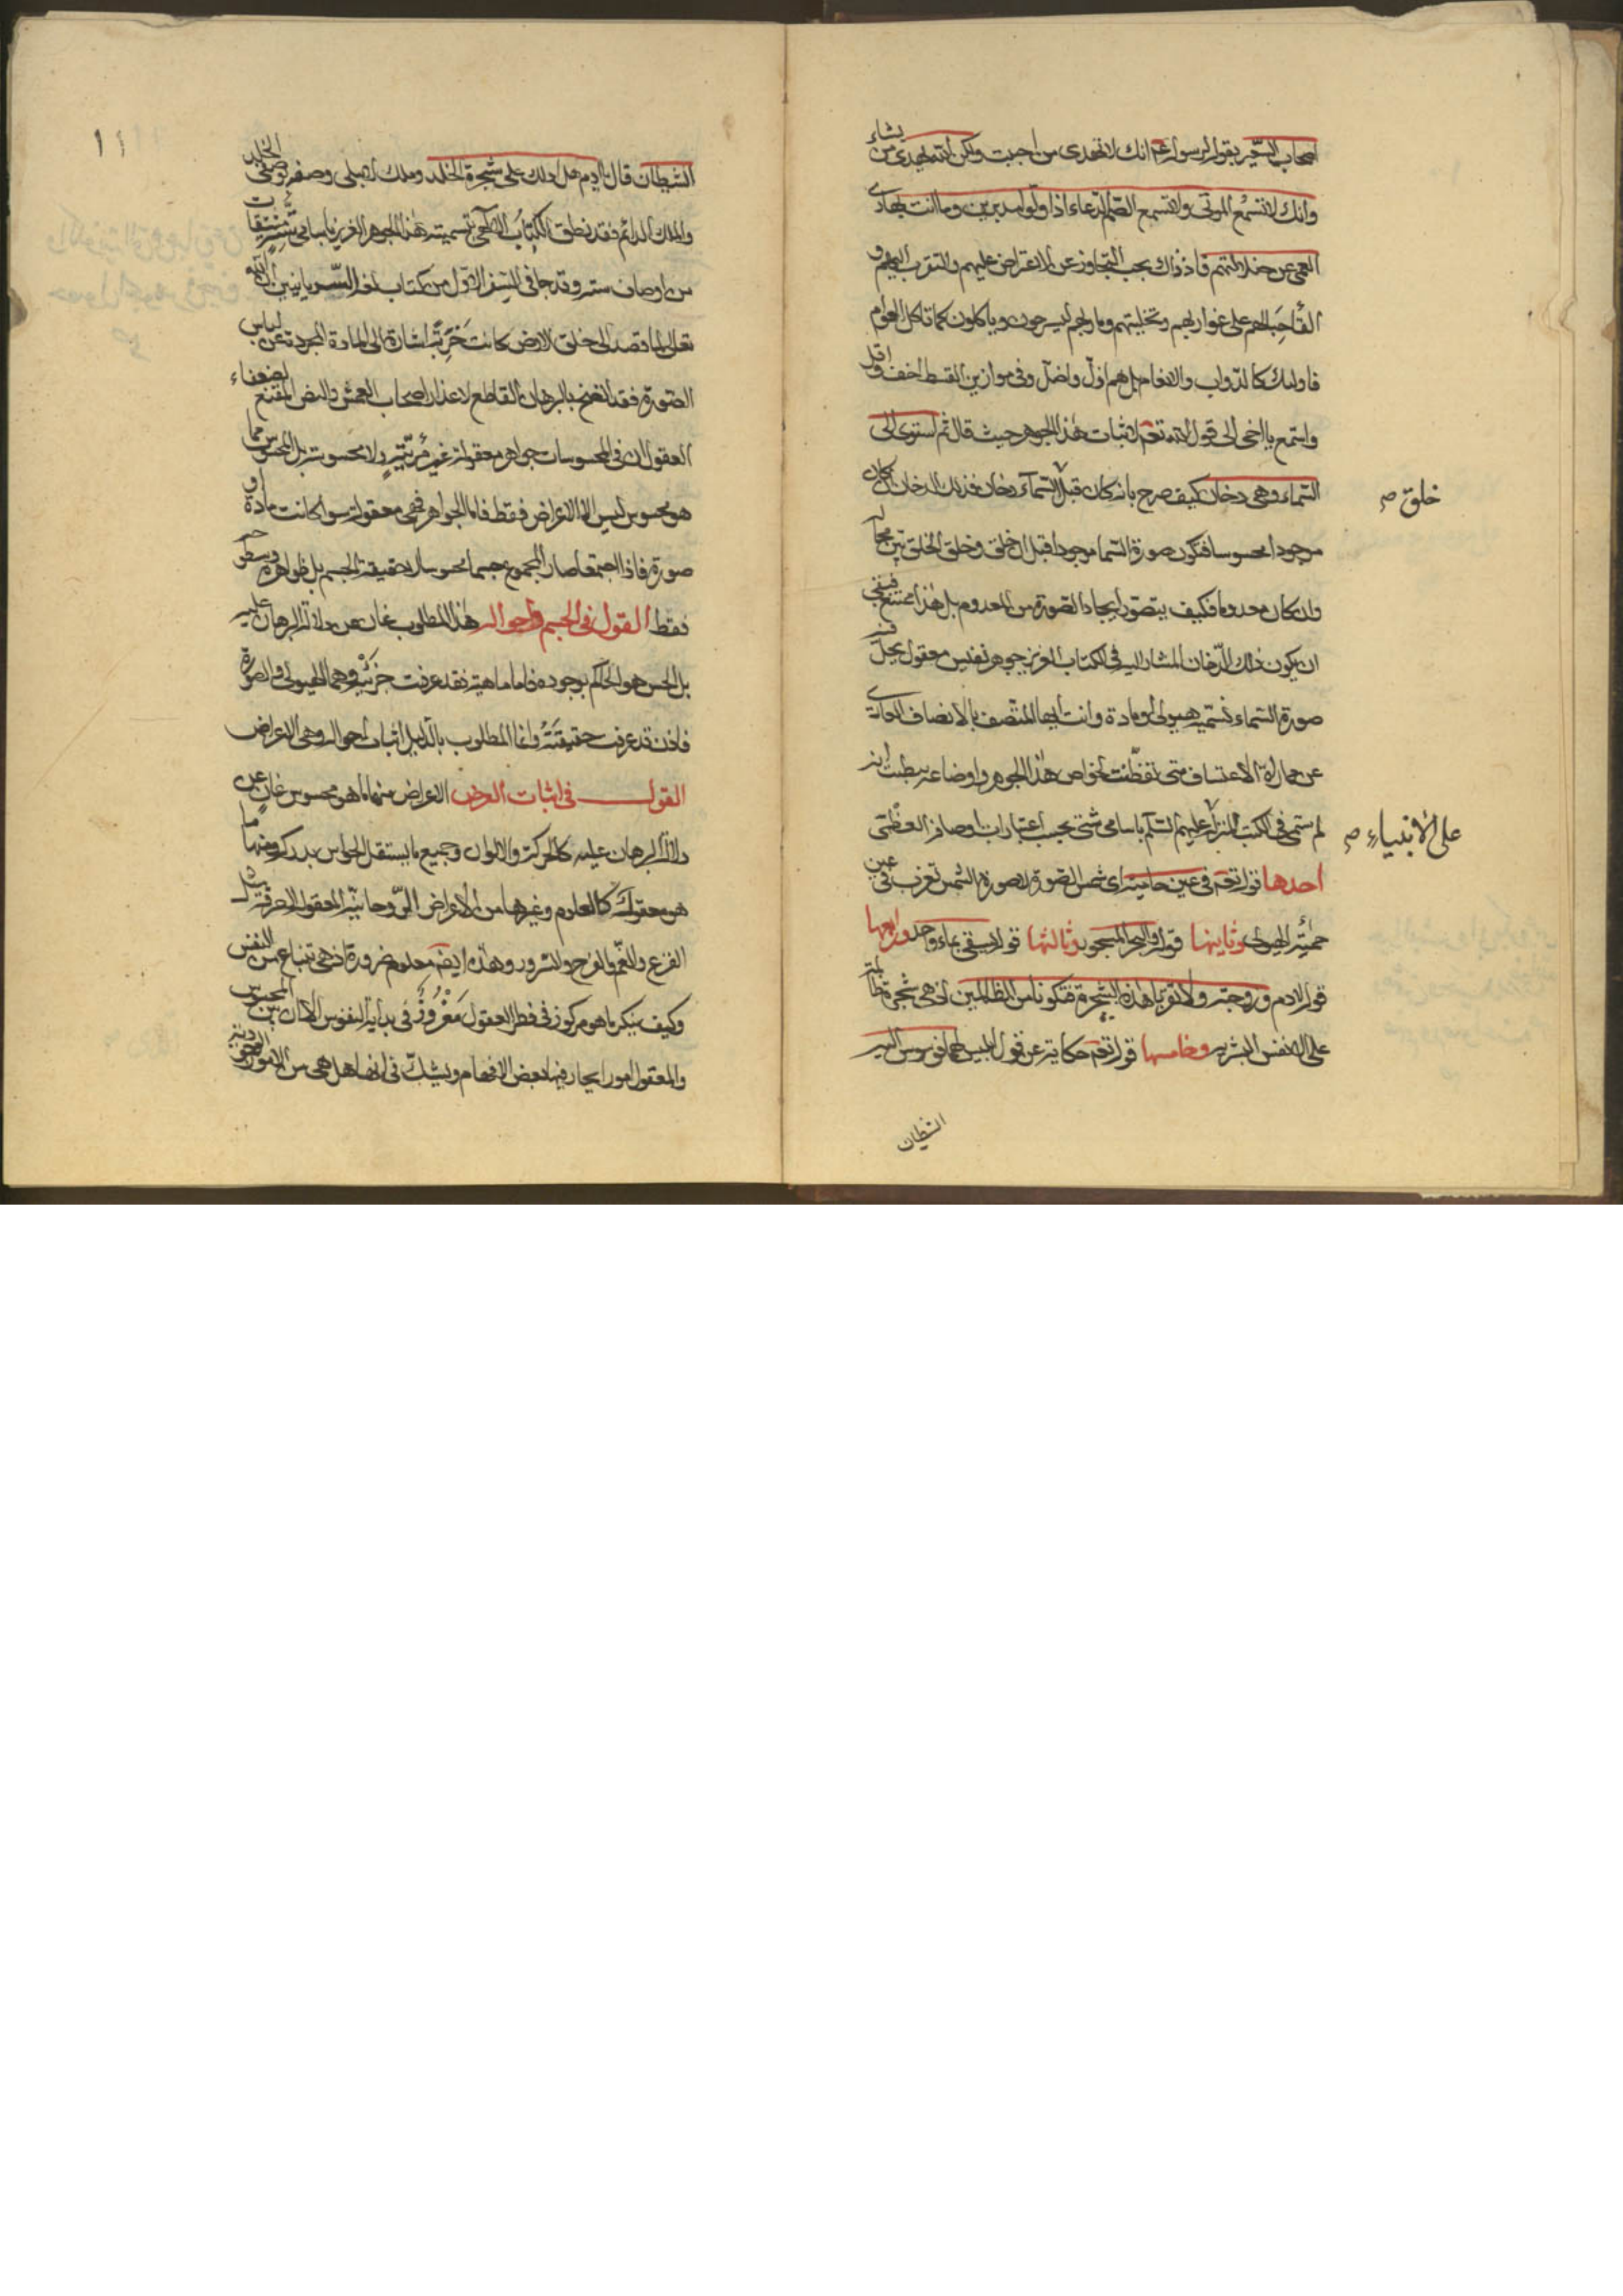 اصحاب السحر بقوله لرسوله عم انك لا تهدى من احببت ولكن الله يهدى من يشاء
وانك لا تسمع الموتى ولا تسمع الصم الدعاء اذا ولوا مدبرين وما انت بهادى
العمى عن ضلالتهم فاذ ذاك يجب التجاوز عن الاعراض عليهم والتقرب اليهم و
حبالهم على غواربهم وتخليتهم ومارجهم ليسرحون وياكلون كما تاكل العوام
فاولئك كالدواب والانعام بل هم اذل واضل وفى موازين القسط اخف واقل
واستمع يا اخى الى قول الله تعم لاثبات هذا الجوهر حيث قال ثم استوى الى
السماء وهى دخان كيف صرح بانه كان قبل السماء دخان فذلك الدخان ان كان
خلق صح
موجودا محسوسا فتكون صورة السما موجودا قبل ان خلق وخلق الخلق بين محال
وان كان معدوما فكيف يتصور ايجاد الصورة من المعدوم بل هذا ممتنع فبقى
ان يكون ذلك الدخان المشار اليه فى الكتاب العزيز جوهر نفيس معقول يحل فيه
صورة السماء نسميه هيولى او مادة وانت ايها المتصف بالانصاف العارى
عن مماراة الاعتساف متى تفطنت لخواص هذا الجوهر واوضاعه انه
لم سمى فى الكتب المنزلة عليهم السلم باسامى شتى بحسب اعتبارات اوصافه العظمى
على الانبياء صح
احدها قوله تعم فى عين حامية اى شمس الصورة لا صورة الشمس تغرب فى عين
حمئة الهيولى وثانيها قوله والبحر المسجور وثالثها قوله يسقى بماء واحد ورابعها
قوله لادم وزوجته ولا تقربا هذه الشجرة فتكونا من الظالمين اذ هى شجرة
على الانفس البشرية وخامسها قوله تعم حكاية عن قول ابليس لهما فوسوس اليه
الشيطان
١١
الشيطان قال يا ادم هل ادلك على شجرة الخلد وملك لا يبلى وصفه بوصفى الخلد
والملك الدائم فقد نطق الكتاب الالهى بتسمية هذا الجوهر العزيز باسامى مشتقات
من اوصاف ستة وقد جا فى السفر الاول من كتاب لغة السريانيين ان الله
تعلى لما قصد الى خلق الارض كانت خربة اشارة الى المادة المجردة عن لباس
الصورة فقد اتضح بالبرهان القاطع لاعذار اصحاب العمش والنص المقنع لضعفاء
العقول ان فى المحسوسات جواهر معقولة غير مرئية ولا محسوسة بل المحسوس مما
هو محسوس ليس الا الاعراض فقط فاما الجواهر فهى معقولة سوا كانت مادة او
صورة فاذا اجتمعا صار المجموع جسما محسوسا لا حقيقة الجسم بل ظواهره وسطوحه
فقط القول فى الجسم واحواله هذا المطلوب غان عن دلالة البرهان عليه
بل الحس هو الحاكم بوجوده فاما ماهيته فقد عرفت جزئيه وهما الهيولى والصورة
فاذن قد عرفت حقيقته وانما المطلوب بالدليل اثبات احواله وهى الاعراض
القول فى اثبات العرض الاعراض منها ما هو محسوس غان عن
دلالة البرهان عليه كالحركة والالوان وجميع ما يستقل الحواس بدركه ومنها ما
هو معقول كالعلوم وغيرها من الاعراض الروحانية المعقولة الصرفة مثل
الفزع والغم والفرح والسرور وهذه ايضا معلوم ضرورة اذ هى تنباع من النفس
وكيف ينكر ما هو مركوز فى فطر العقول مغروز فى بداية النفوس الا ان بين المحسوس
والمعقول امورا يحار فيها بعض الافهام ويشك فى انها هل هى من الامور الوجودية